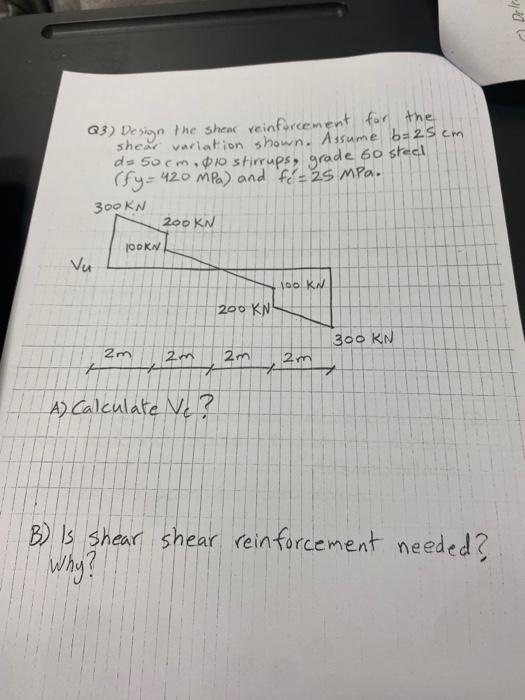 Q3) Design the shear reinforcement for the
shear variation shown. Assume b=25 cm
d= 50 cm, Φ10 stirrups, grade 60 steel
(fy= 420 MPa) and fc'= 25 MPa.
300 KN
200 KN
100KN
Vu
100 KN
200 KN
300 KN
2m 2m 2m 2m
A) Calculate Vc?
B) Is shear shear reinforcement needed?
Why?